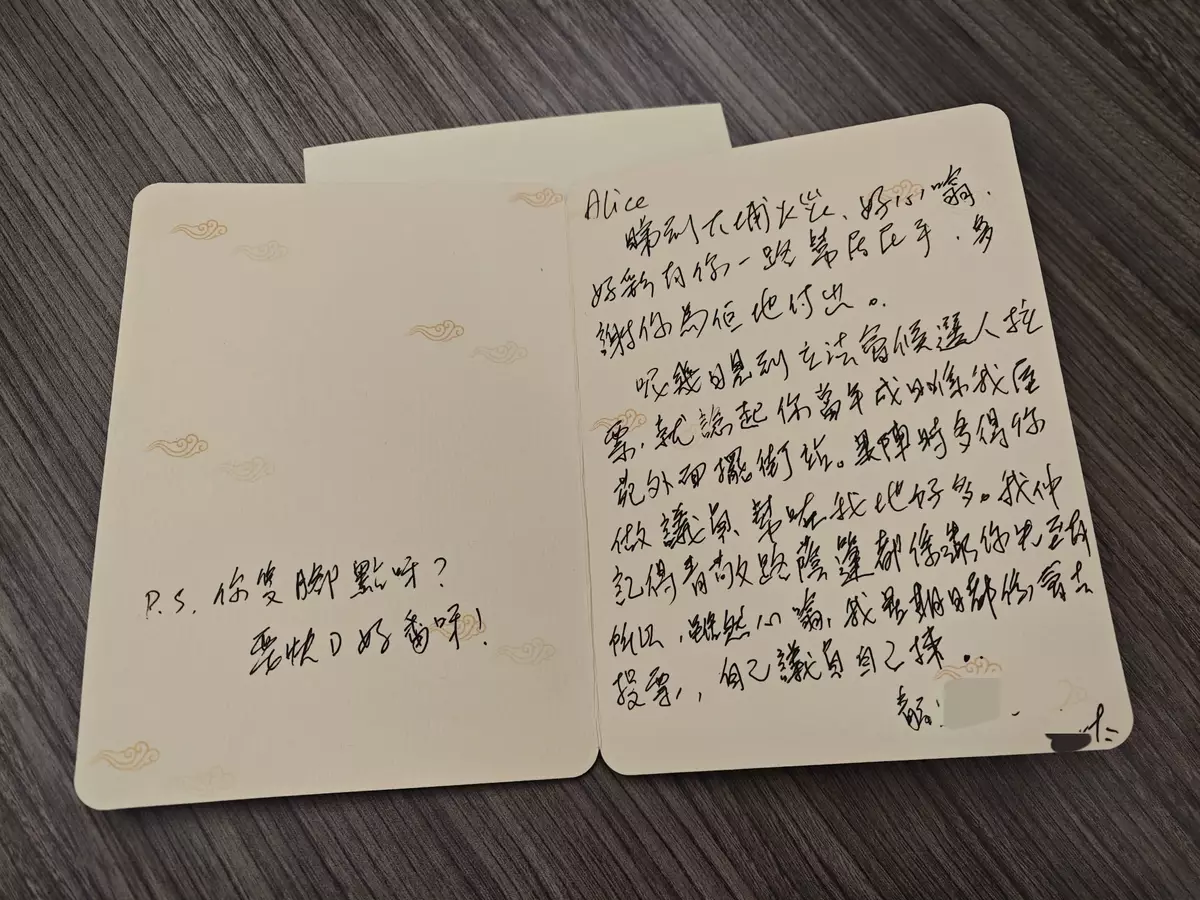 P.S. 你隻腳點呀?
要快D好番呀!
Alice
睇到大埔火災、好心噏.
好彩有你一路幫居民手、多
謝你為佢地付出。
呢幾日見到立法會候選人拉
票,就諗起你當年成日係我屋
苑外面擺街站。果陣時多得你
做議員、幫咗我地好多。我仲
記得青敬路蔭蓬都係跟你先至有
所以,雖然心噏,我星期日都係會去
投票,自己議員自己揀..